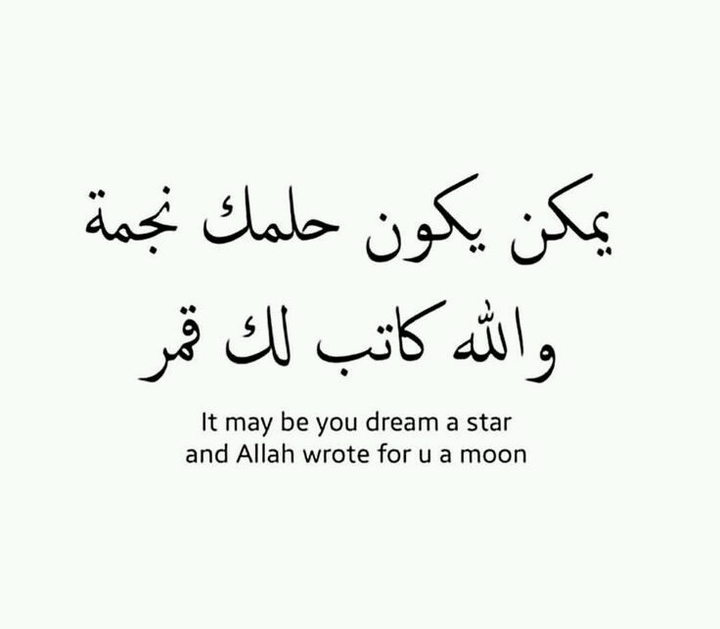 يمكن يكون حلمك نجمة
والله كاتب لك قمر
It may be you dream a star
and Allah wrote for u a moon